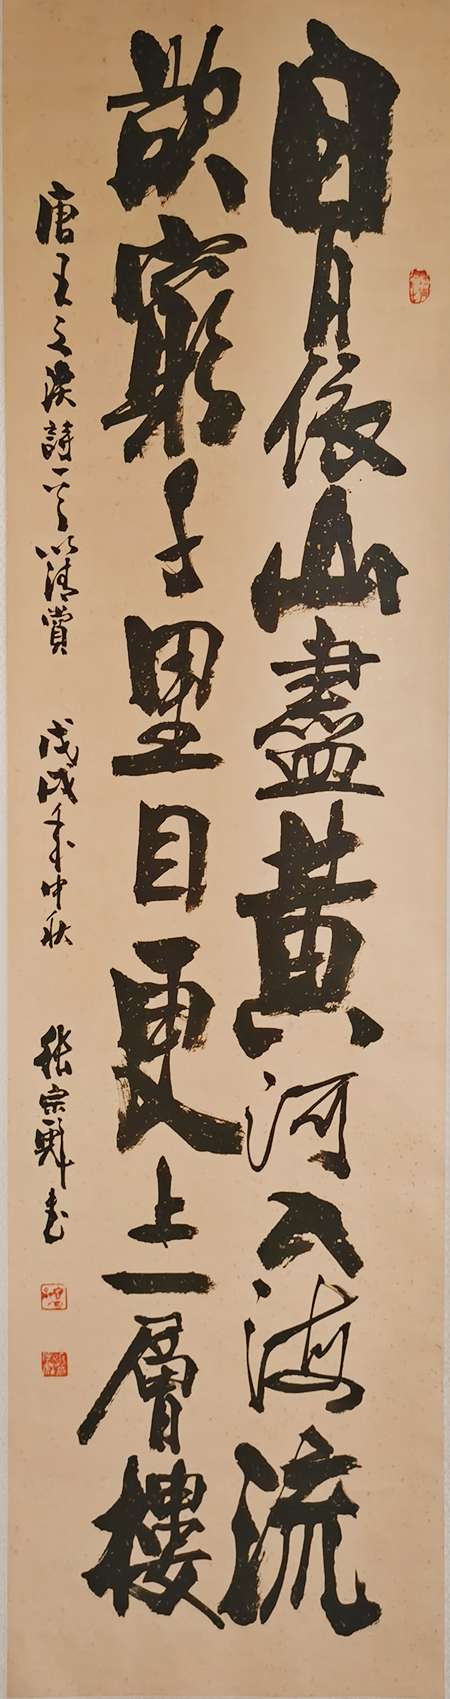 白日依山盡黃河入海流
欲窮千里目更上一層樓
唐王之渙詩一首以清賞 戊戌年仲秋 張宗書